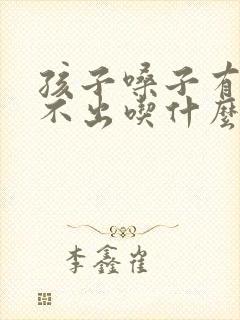 孩子嗓子有
不出喫什麼
李鑫崔